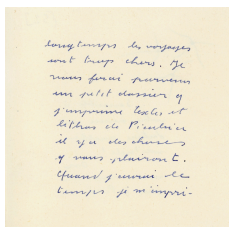 longtemps les voyages
sont trop chers. Je
vous ferai parvenir
un petit dossier
j'imprime textes et
lithos de Picabia
il y a des choses
q vous plairont.
Quand j'aurai le
temps je m'impri-